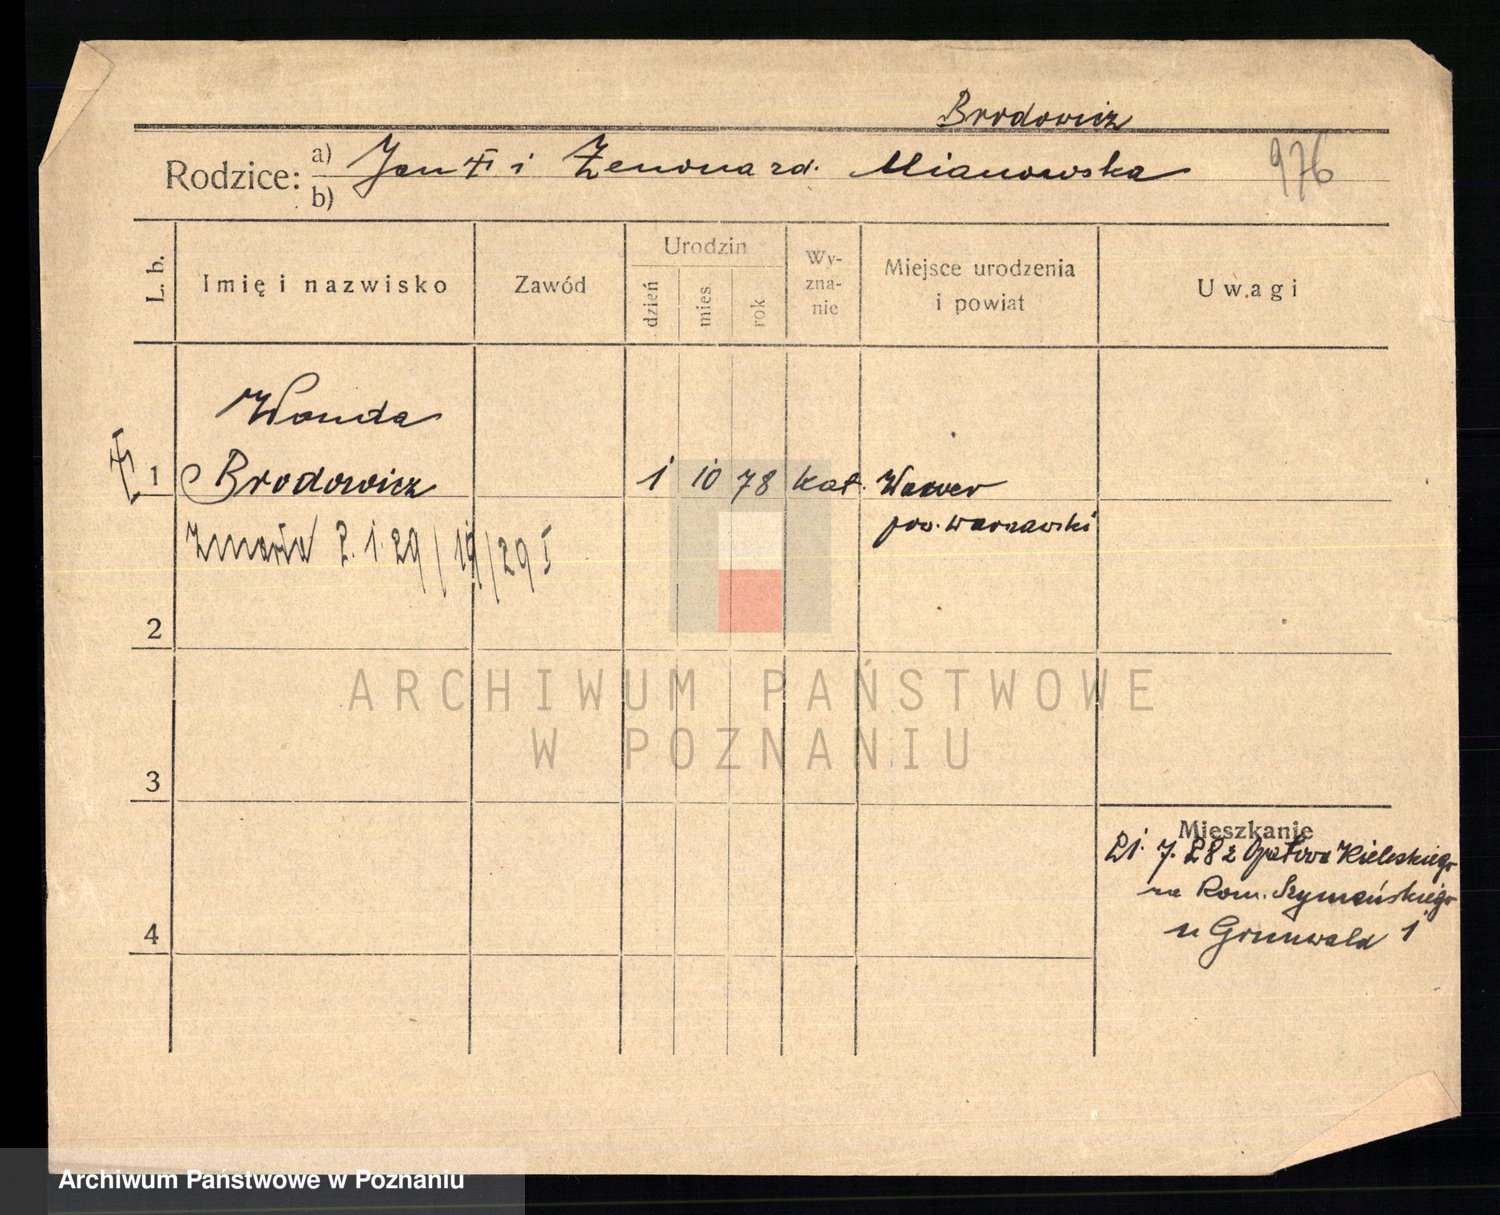 Brodowicz
Rodzice: a) Jan i Zenona zd. Mianowska 976
b)
L. b.
Imię i nazwisko
Zawód
Urodzin
dzień
mies.
rok
Wy-
zna-
nie
Miejsce urodzenia
i powiat
Uwagi
Wanda
1 Brodowicz 1 10 78 kat. Wawer
pow. warszawski
Zmarła 2. 1. 29 / 29 I
2
ARCHIWUM PAŃSTWOWE
W POZNANIU
3
Mieszkanie
21. 7. 282 Opatowa Kieleckiego
na Rom. Szymańskiego
4
u Grunwald 1
Archiwum Państwowe w Poznaniu